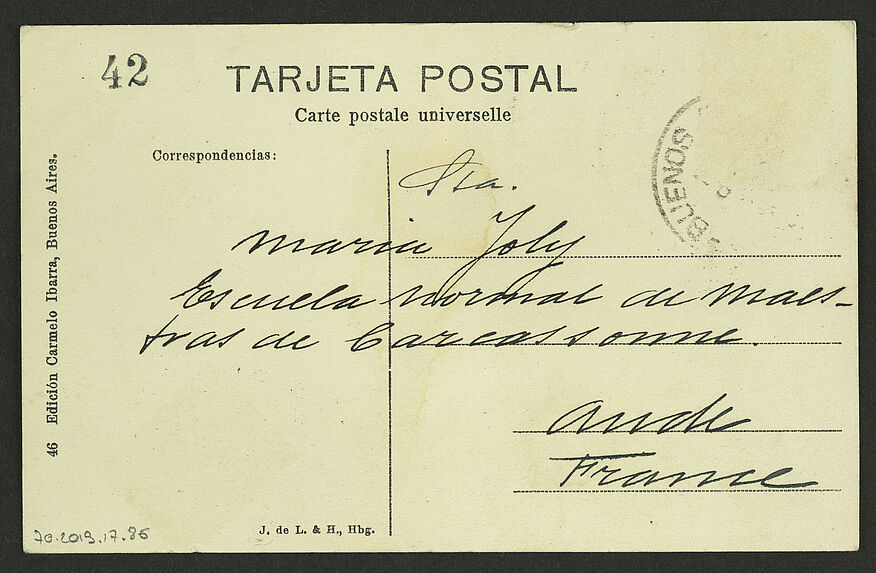 42
TARJETA POSTAL
Carte postale universelle
Correspondencias:
BUENOS
Sta.
Maria Joly
Escuela normal de Maes-
tras de Carcassonne.
Aude
France
46 Edición Carmelo Ibarra, Buenos Aires.
J. de L. & H., Hbg.
70.2019.17.86